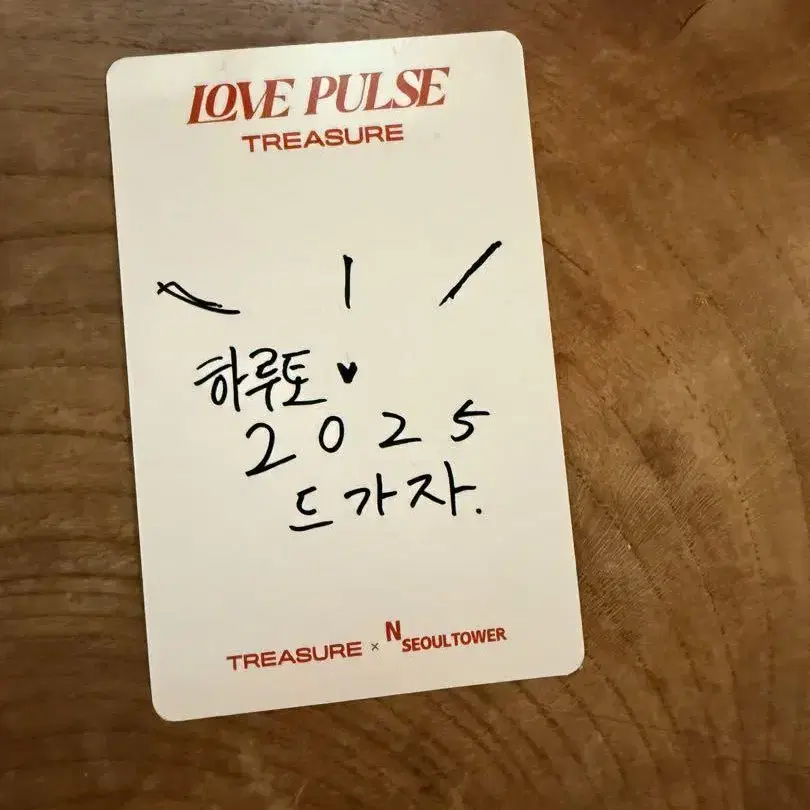 LOVE PULSE
TREASURE
하루토 ♥
2025
드가자.
TREASURE × N SEOULTOWER